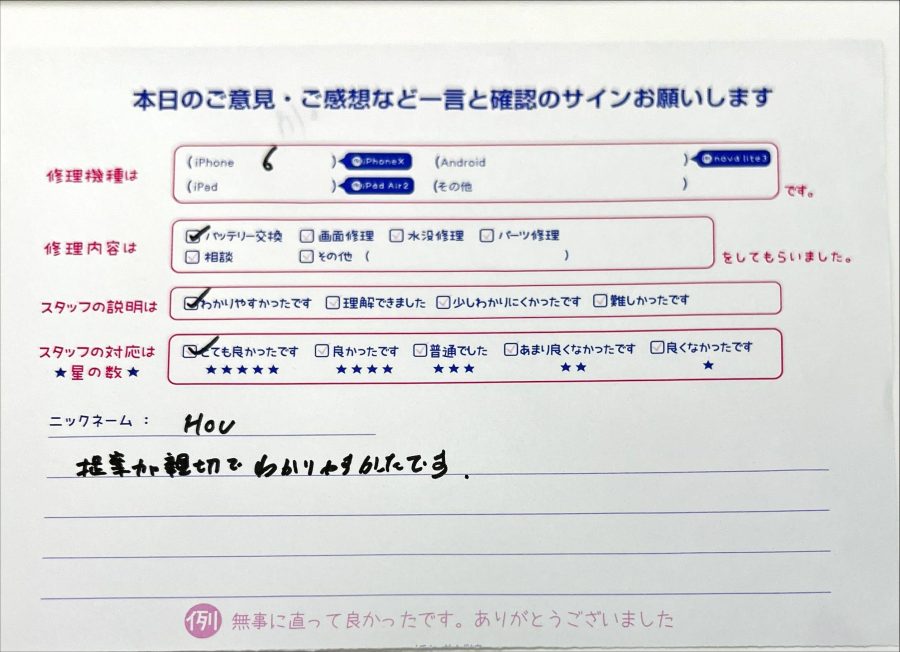 本日のご意見・ご感想など一言と確認のサインお願いします
修理機種は (iPhone 6 ) 例iPhoneX (Android ) 例nova lite3
(iPad ) 例iPad Air2 (その他 ) です。
修理内容は バッテリー交換 画面修理 水没修理 パーツ修理
相談 その他 ( ) をしてもらいました。
スタッフの説明は わかりやすかったです 理解できました 少しわかりにくかったです 難しかったです
スタッフの対応は とても良かったです 良かったです 普通でした あまり良くなかったです 良くなかったです
★星の数★ ★★★★★ ★★★★ ★★★ ★★ ★
ニックネーム: Hou
提案が親切でわかりやすかたです.
例 無事に直って良かったです。ありがとうございました